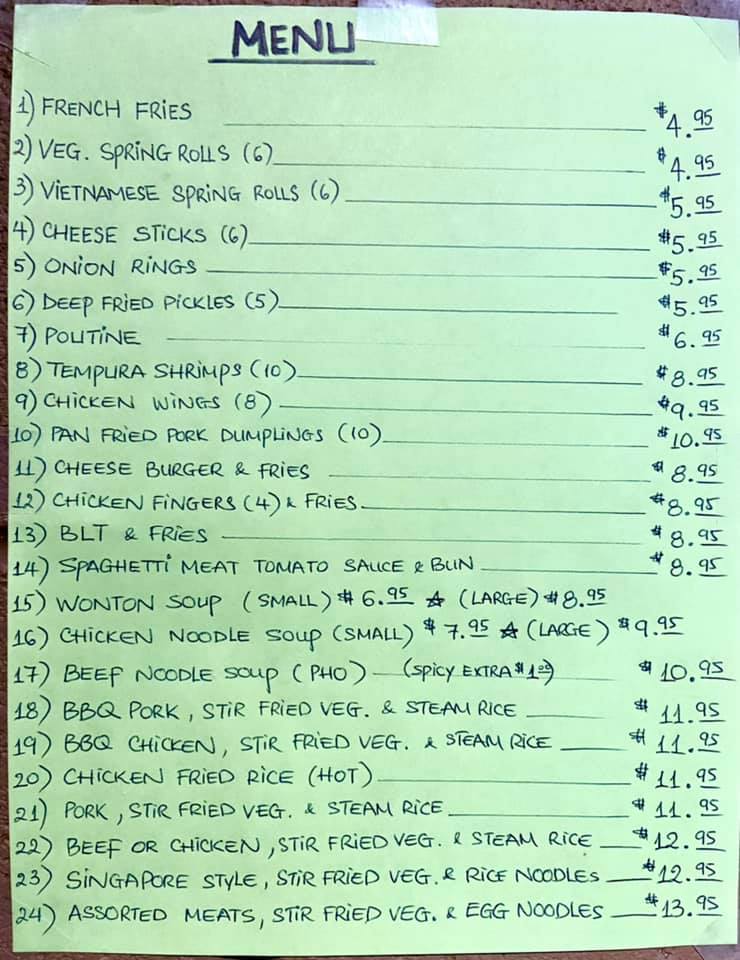 MENU
1) FRENCH FRIES $4.95
2) VEG. SPRING ROLLS (6) $4.95
3) VIETNAMESE SPRING ROLLS (6) $5.95
4) CHEESE STICKS (6) $5.95
5) ONION RINGS $5.95
6) DEEP FRIED PICKLES (5) $5.95
7) POUTINE $6.95
8) TEMPURA SHRIMPS (10) $8.95
9) CHICKEN WINGS (8) $9.95
10) PAN FRIED PORK DUMPLINGS (10) $10.95
11) CHEESE BURGER & FRIES $8.95
12) CHICKEN FINGERS (4) & FRIES $8.95
13) BLT & FRIES $8.95
14) SPAGHETTI MEAT TOMATO SAUCE & BUN $8.95
15) WONTON SOUP (SMALL) $6.95 ☆ (LARGE) $8.95
16) CHICKEN NOODLE SOUP (SMALL) $7.95 ☆ (LARGE) $9.95
17) BEEF NOODLE SOUP (PHO) — (SPICY EXTRA $1.00) $10.95
18) BBQ PORK, STIR FRIED VEG. & STEAM RICE $11.95
19) BBQ CHICKEN, STIR FRIED VEG. & STEAM RICE $11.95
20) CHICKEN FRIED RICE (HOT) $11.95
21) PORK, STIR FRIED VEG. & STEAM RICE $11.95
22) BEEF OR CHICKEN, STIR FRIED VEG. & STEAM RICE $12.95
23) SINGAPORE STYLE, STIR FRIED VEG. & RICE NOODLES $12.95
24) ASSORTED MEATS, STIR FRIED VEG. & EGG NOODLES $13.95